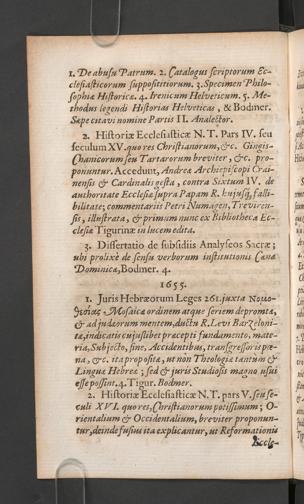 1. De abusu Patrum. 2. Catalogus scriptorum Ec-
clesiasticorum supposititiorum. 3. Specimen Philo-
sophiæ Historicæ. 4. Irenicum Helveticum. 5. Me-
thodus legendi Historias Helveticas, & Bodmer.
Sæpe citavi nomine Partis II. Analector.
2. Historiæ Ecclesiasticæ N. T. Pars IV. seu
seculum XV. quo res Christianorum, &c. Gingis-
Chanicorum seu Tartarorum breviter, &c. pro-
ponuntur. Accedunt, Andreæ Archiepiscopi Crai-
nensis & Cardinalis gesta, contra Sixtum IV. de
authoritate Ecclesiæ supra Papam R. hujusq; falli-
bilitate; commentariis Petri Numagen, Treviren-
sis, illustrata, & primum nunc ex Bibliotheca Ec-
clesiæ Tigurinæ in lucem edita.
3. Dissertatio de subsidiis Analyseos Sacræ;
ubi prolixè de sensu verborum institutionis Cœnæ
Dominicæ, Bodmer. 4.
1655.
1. Juris Hebræorum Leges 261. juxta Νομο-
θεσίας Mosaicæ ordinem atque seriem depromtæ,
& ad judæorum mentem, ductu R. Levi Barzeloni-
tæ, indicatis cujuslibet præcepti fundamento, mate-
ria, Subjecto, fine, Accidentibus, transgressoris pœ-
na, &c. ita propositæ, ut non Theologiæ tantum &
Linguæ Hebreæ; sed & juris Studiosis magno usui
esse possint. 4. Tigur. Bodmer.
2. Historiæ Ecclesiasticæ N. T. pars V. seu se-
culi XVI. quo res, Christianorum potissimum; O-
rientalium & Occidentalium, breviter proponun-
tur, deinde fusius ita explicantur, ut Reformationis
Eccle-